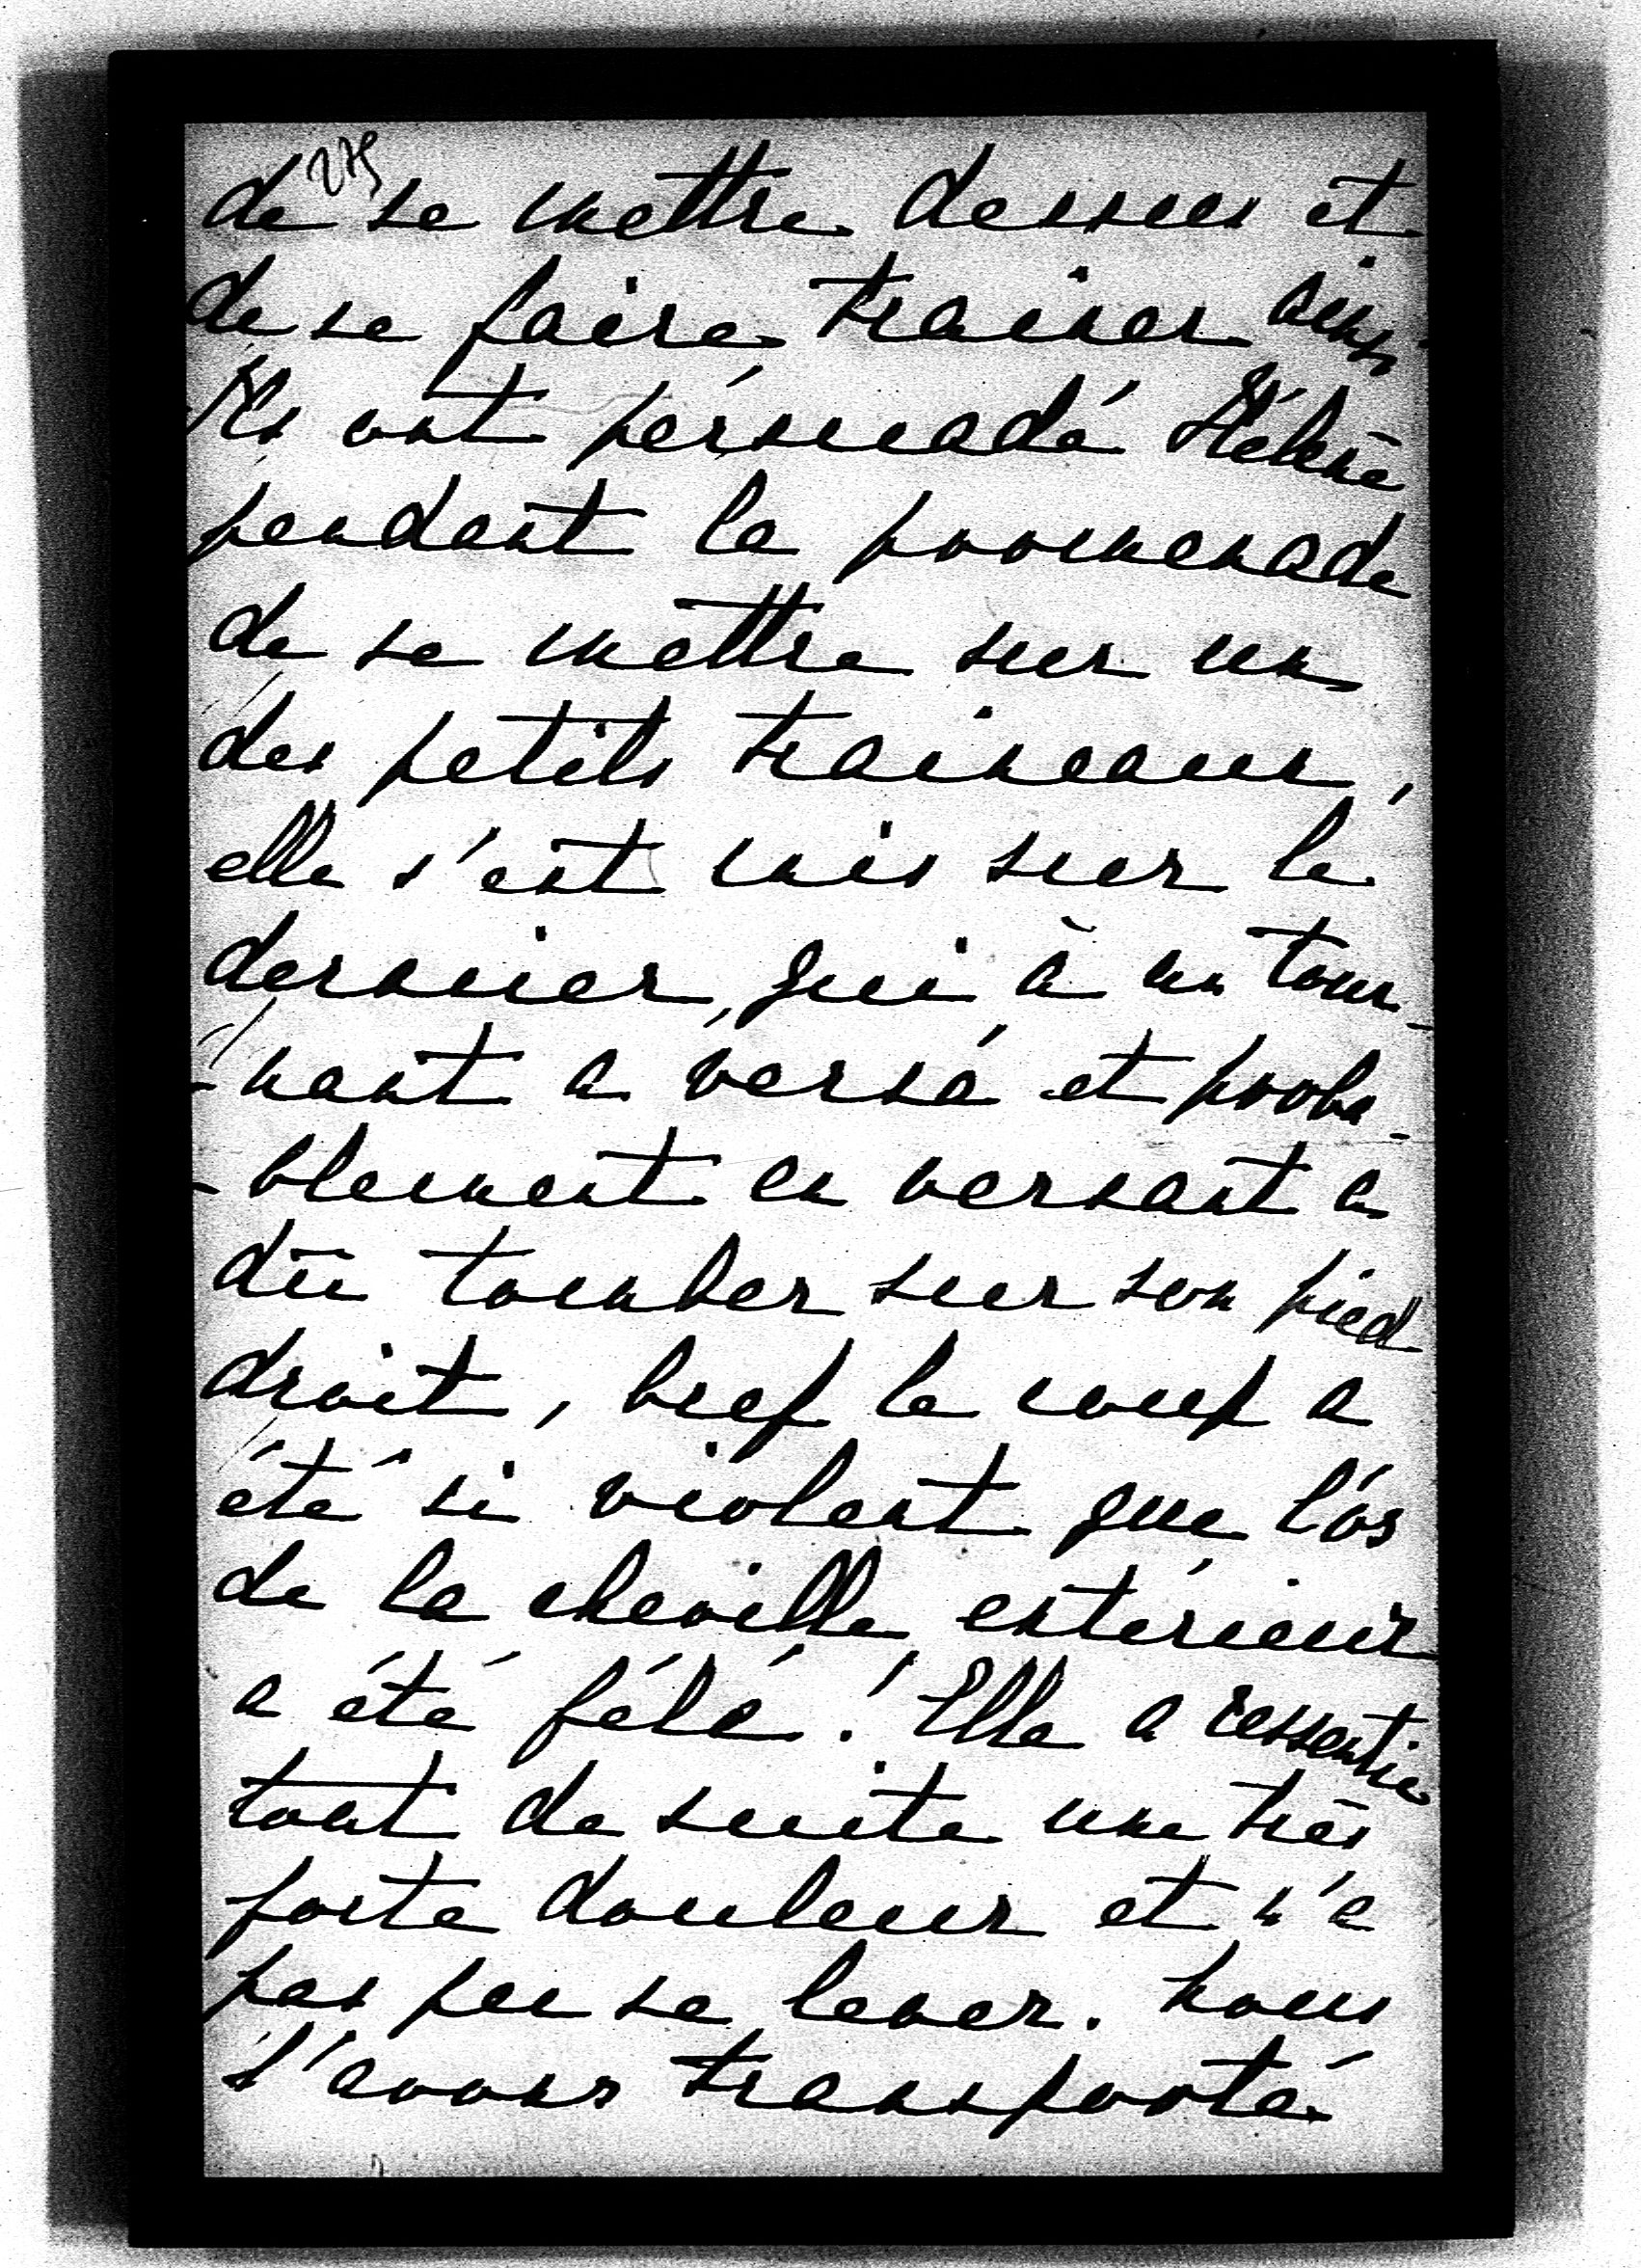 275
de se mettre dessus et
de se faire trainer ainsi.
Ils ont persuadé Hélène
pendant la promenade
de se mettre sur un
des petits traineaux,
elle s'est mis sur le
dernier, qui à un tour-
-nant a versé et proba-
-blement en versant a
dû tomber sur son pied
droit, bref le coup a
été si violent que l'os
de la cheville extérieur
a été fêlé! Elle a ressentie
tout de suite une très
forte douleur et n'a
pas pu se lever. Nous
l'avons transporté